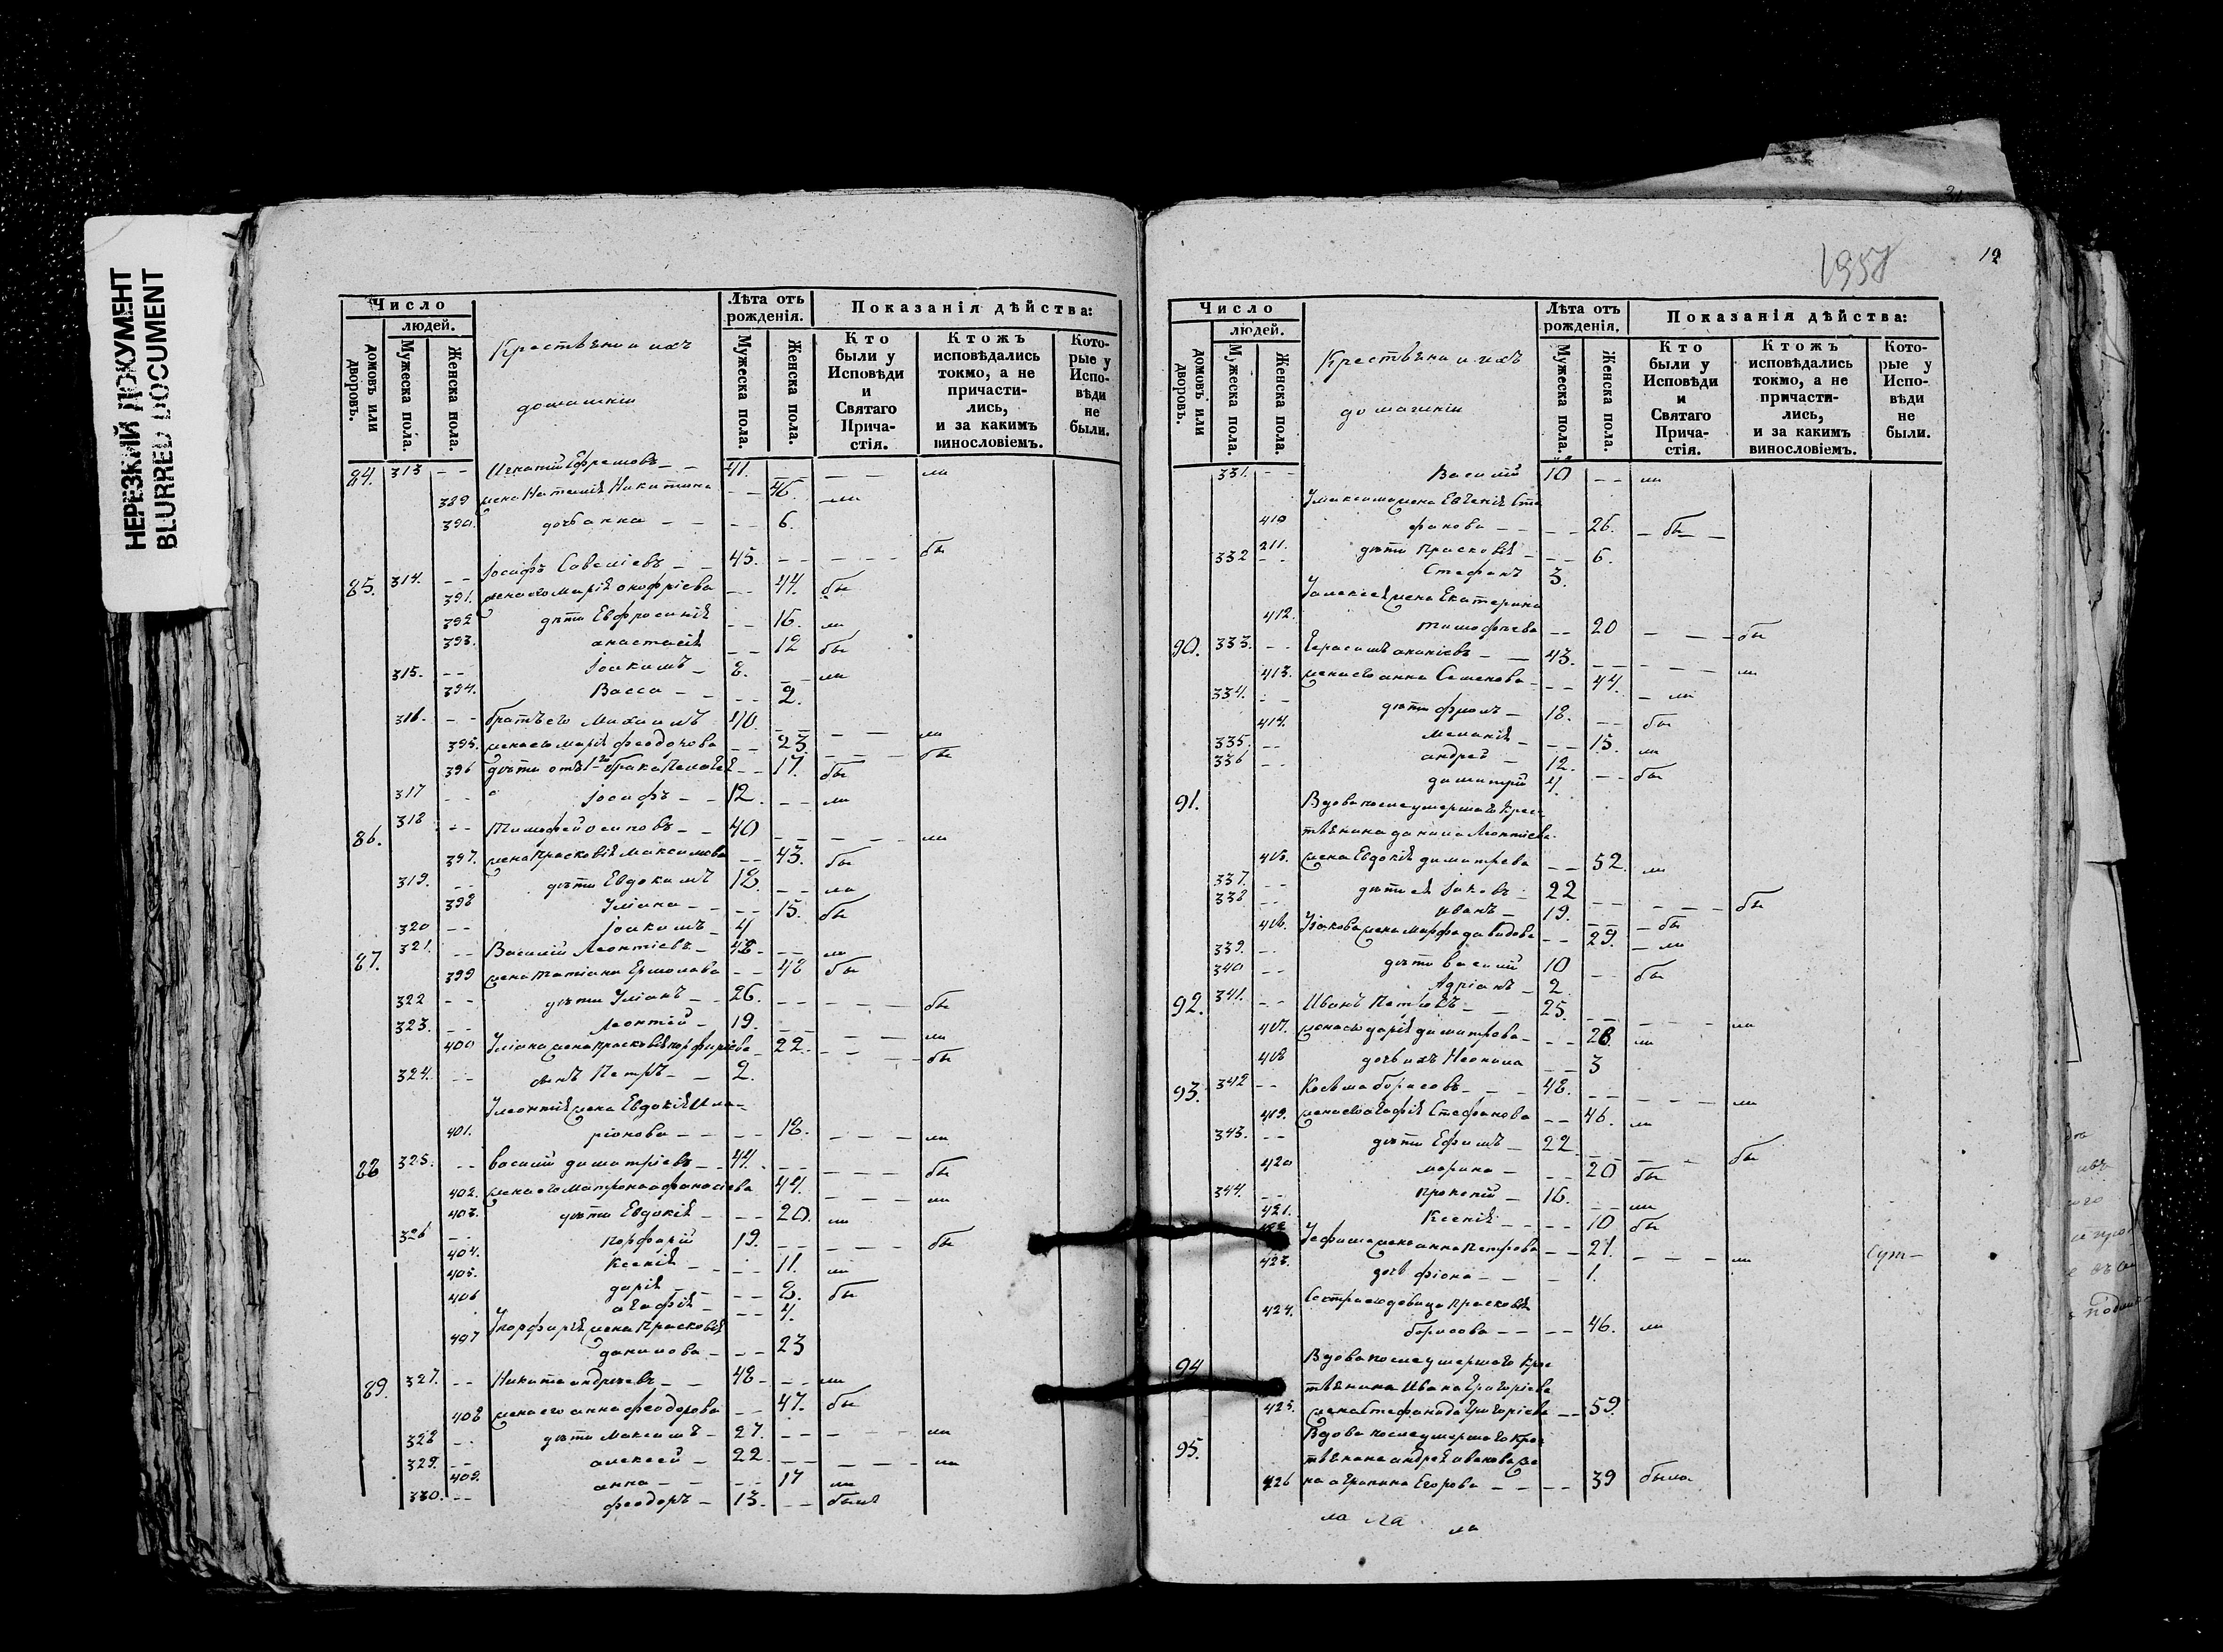 НЕРЕЗКИЙ ДОКУМЕНТ
BLURRED DOCUMENT
Число
людей.
домовъ или дворовъ.
Мужеска пола.
Женска пола.
Крестьяне и ихъ
домашніи
Лѣта отъ рожденія.
Мужеска пола.
Женска пола.
Показанія дѣйства:
Кто были у Исповѣди и Святаго Прича-стія.
Ктожъ исповѣдались токмо, а не причасти-лись, и за какимъ винословіемъ.
Кото-рые у Испо-вѣди не были.
84. 313 - - Игнатій Ефремовъ - - 41. - - - - ли
389 жена Наталія Никитина - - 46 - ли
390. дочь анна - - - - 6.
85. 314. - - Іосифъ Савеліевъ - - 45. - - - - бы
391. жена его марія онофріева - - 44. бы
392 дѣти Евфросинія - - 16. ли
393. анастасія - - 12 бы
315. - - Іоакимъ - 8. - - ли
394. Васса - - - 2.
316. - - братъ его Максимъ 40. - - - - ли
395. жена его марія феодорова - - 23 - - - бы
396 дѣти отъ 1го брака Пелагея - - 17. бы
317 - - Іосифъ - - 12. - - ли
86. 318 - - Тимофей осиповъ - - 40 - - - - ли
397. жена Прасковія Максимова - - 43. бы
319. - - дѣти Евдокимъ 18. - - ли
398 Уліана - - - - 15. бы
320 - - Іоакимъ - 4
87. 321. - - Василій Леонтіевъ - 48 - - - ли
399 жена Татіана Ермолаева - - 48 бы
322 - - дѣти Уліанъ - - 26. - - - - - бы
323. - - Леонтій - 19. - - - - ли
400 Уліана жена прасковія порфиріева - 22. - - - - бы
324. - - сынъ Петръ - - 2.
Улеонтія жена Евдокія Ила-
401. ріонова - - - - 18. - - - ли
88 325. - - василій димитріевъ - - 44. - - - - - бы
402. жена его матрона афанасіева 44. - - - ли
403. дѣти Евдокія - - - 20. ли
326 - - порфирій 19. - - - - - бы
404. Ксенія - - - - 11. ли
405. дарія - - - 8. бы
406 агафія - - - 4.
Упорфирія жена Прасковія
407 данилова - - - 23
89. 327. - - Никита андреевъ - - 48 - - - ли
408 жена его анна феодорова - - 47. бы
328 - - дѣти Максимъ - 27. - - - - - ли
329. - - алексей - 22. - - - - - ли
409. анна - - - - 17 ли
330. - - феодоръ - 13. - - былъ
1957
12
Число
людей.
домовъ или дворовъ.
Мужеска пола.
Женска пола.
Крестьяне и ихъ
домашніи
Лѣта отъ рожденія.
Мужеска пола.
Женска пола.
Показанія дѣйства:
Кто были у Исповѣди и Святаго Прича-стія.
Ктожъ исповѣдались токмо, а не причасти-лись, и за какимъ винословіемъ.
Кото-рые у Испо-вѣди не были.
331. - - Василій 10 - - ли
Умаксима жена Евгенія Сте
410 фанова - - - - 26. - бы - -
211. дѣти прасковія - - - 6.
332 - - Стефанъ 3.
Уалексея жена Екатерина
412. тимофѣева - - 20 - - - бы
90. 333. - - Герасимъ ананіевъ - - 43. - - - - - ли
413. жена его анна Семенова - - - 44. - ли
334. - - дѣти фролъ - 18. - - бы
414. меланія - - - 15. ли
335. - - андрей - 12. - - бы
336 - - димитрій 4.
91. Вдова после умершаго крес-
тьянина данила Леонтіева
415. жена Евдокія димитрева - - 52. ли
337. - - дѣти ея Іаковъ - 22 - - - - - бы
338 - - иванъ - 19. - - - бы
416. Уіакова жена марфа давидова - - 29. - ли
339. - - дѣти василій 10 - - бы
340 - - Адріанъ - 2
92. 341. - - Иванъ Петровъ - - 25. - - - - - ли
417. жена его дарія димитрова - - - 28. ли
418 дочь ихъ Неонила - - 3
93. 342 - - Косьма борисовъ - - - 48. - - - - - ли
419. жена его агафія Стефанова - - 46. ли
343. - - дѣти Ефимъ - 22. - - - - бы
420 марина - - - 20 бы
344. - - прокопій - 16. - - ли
421. Ксенія - - - - 10 бы
422 Уефима жена анна петрова - - 21. - - - ли
423. дочь фіона - - - 1.
424. Сестра его девица прасковія
борисова - - - - 46. ли
94 Вдова после умершаго крес
тьянина Ивана Григоріева
425. жена Стефанида Григоріева - - 59.
95. Вдова после умершаго крес
тьянина андрея иванова же
426 на агрипина Егорова - - - - 39 была
ла ла ла